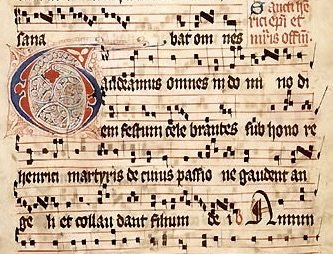 Sancti he
rici epi et
sana bat om nes
Gaudeamus omnes in do mi no di
em festum cele brantes sub hono re
henrici martyris de cuius passio ne gaudent an
ge li et collau dant filium de i